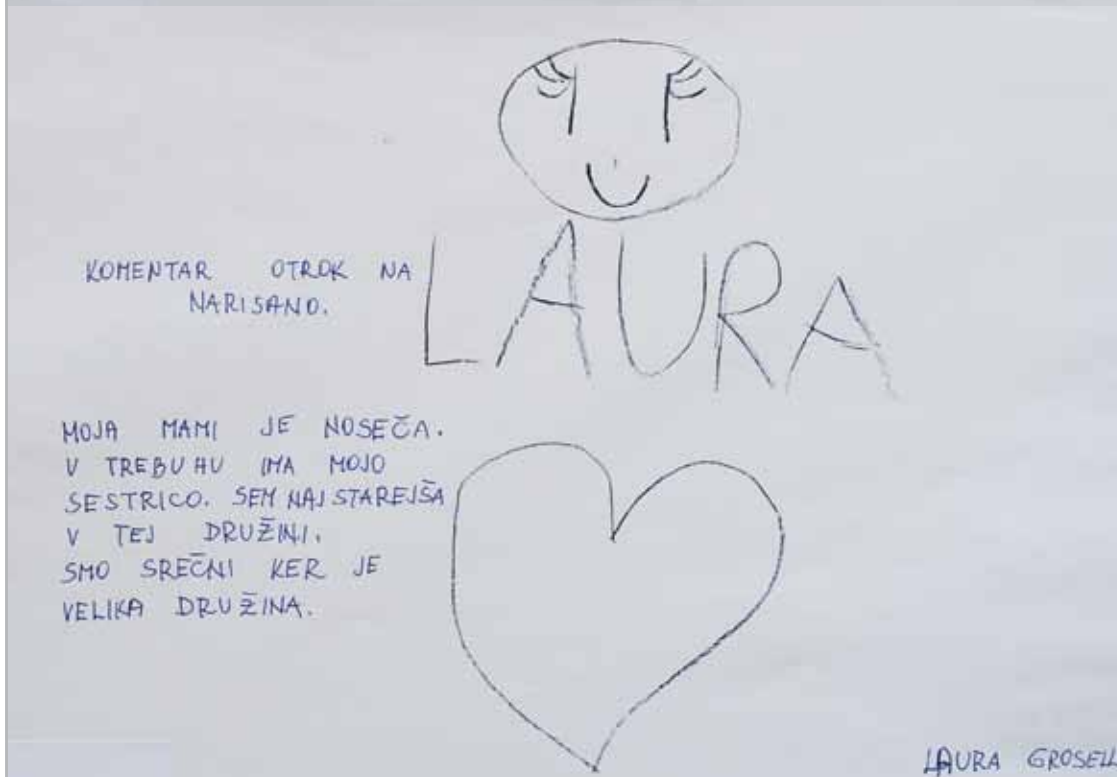 KOMENTAR OTROK NA
NARISANO.
LAURA
MOJA MAMI JE NOSEČA.
V TREBUHU IMA MOJO
SESTRICO. SEM NAJSTAREJŠA
V TEJ DRUŽINI.
SMO SREČNI KER JE
VELIKA DRUŽINA.
LAURA